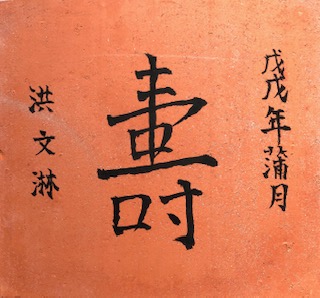 戊戌年蒲月
壽
洪文淋